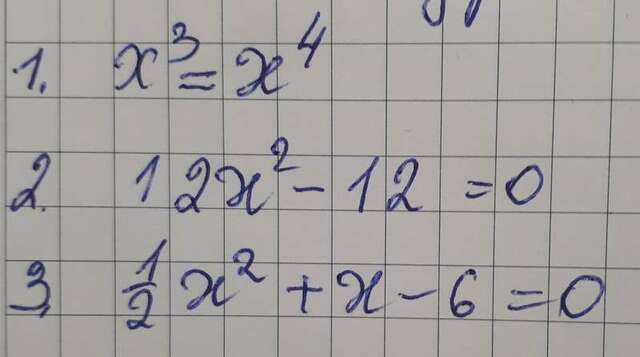 1. x³ = x⁴
2. 12x² - 12 = 0
3. ½x² + x - 6 = 0